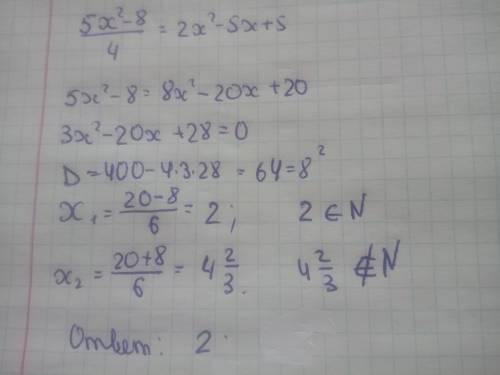 (5x²-8)/4 = 2x²-5x+5
5x²-8=8x²-20x+20
3x²-20x+28=0
D=400-4·3·28=64=8²
x₁=(20-8)/6=2; 2∈N
x₂=(20+8)/6=4 2/3. 4 2/3 ∉N
Ответ: 2.